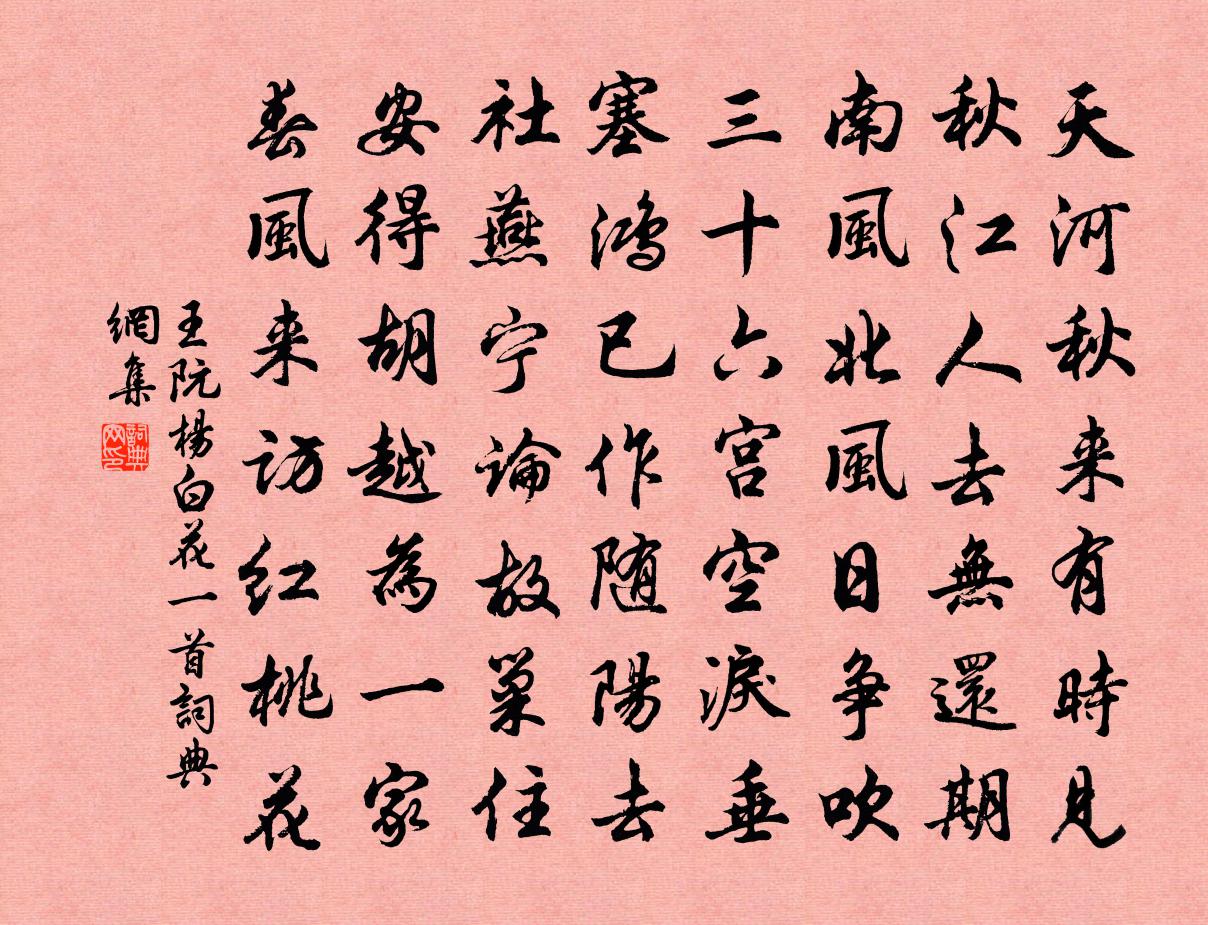 天河秋来有時見
秋江人去無還期
南風北風日争吹
三十六宫空淚垂
塞鸿已作随陽去
社燕宁論故巢住
安得胡越為一家
春風来访红桃花
王阮楊白花一首詞典
網集
詞典
网印